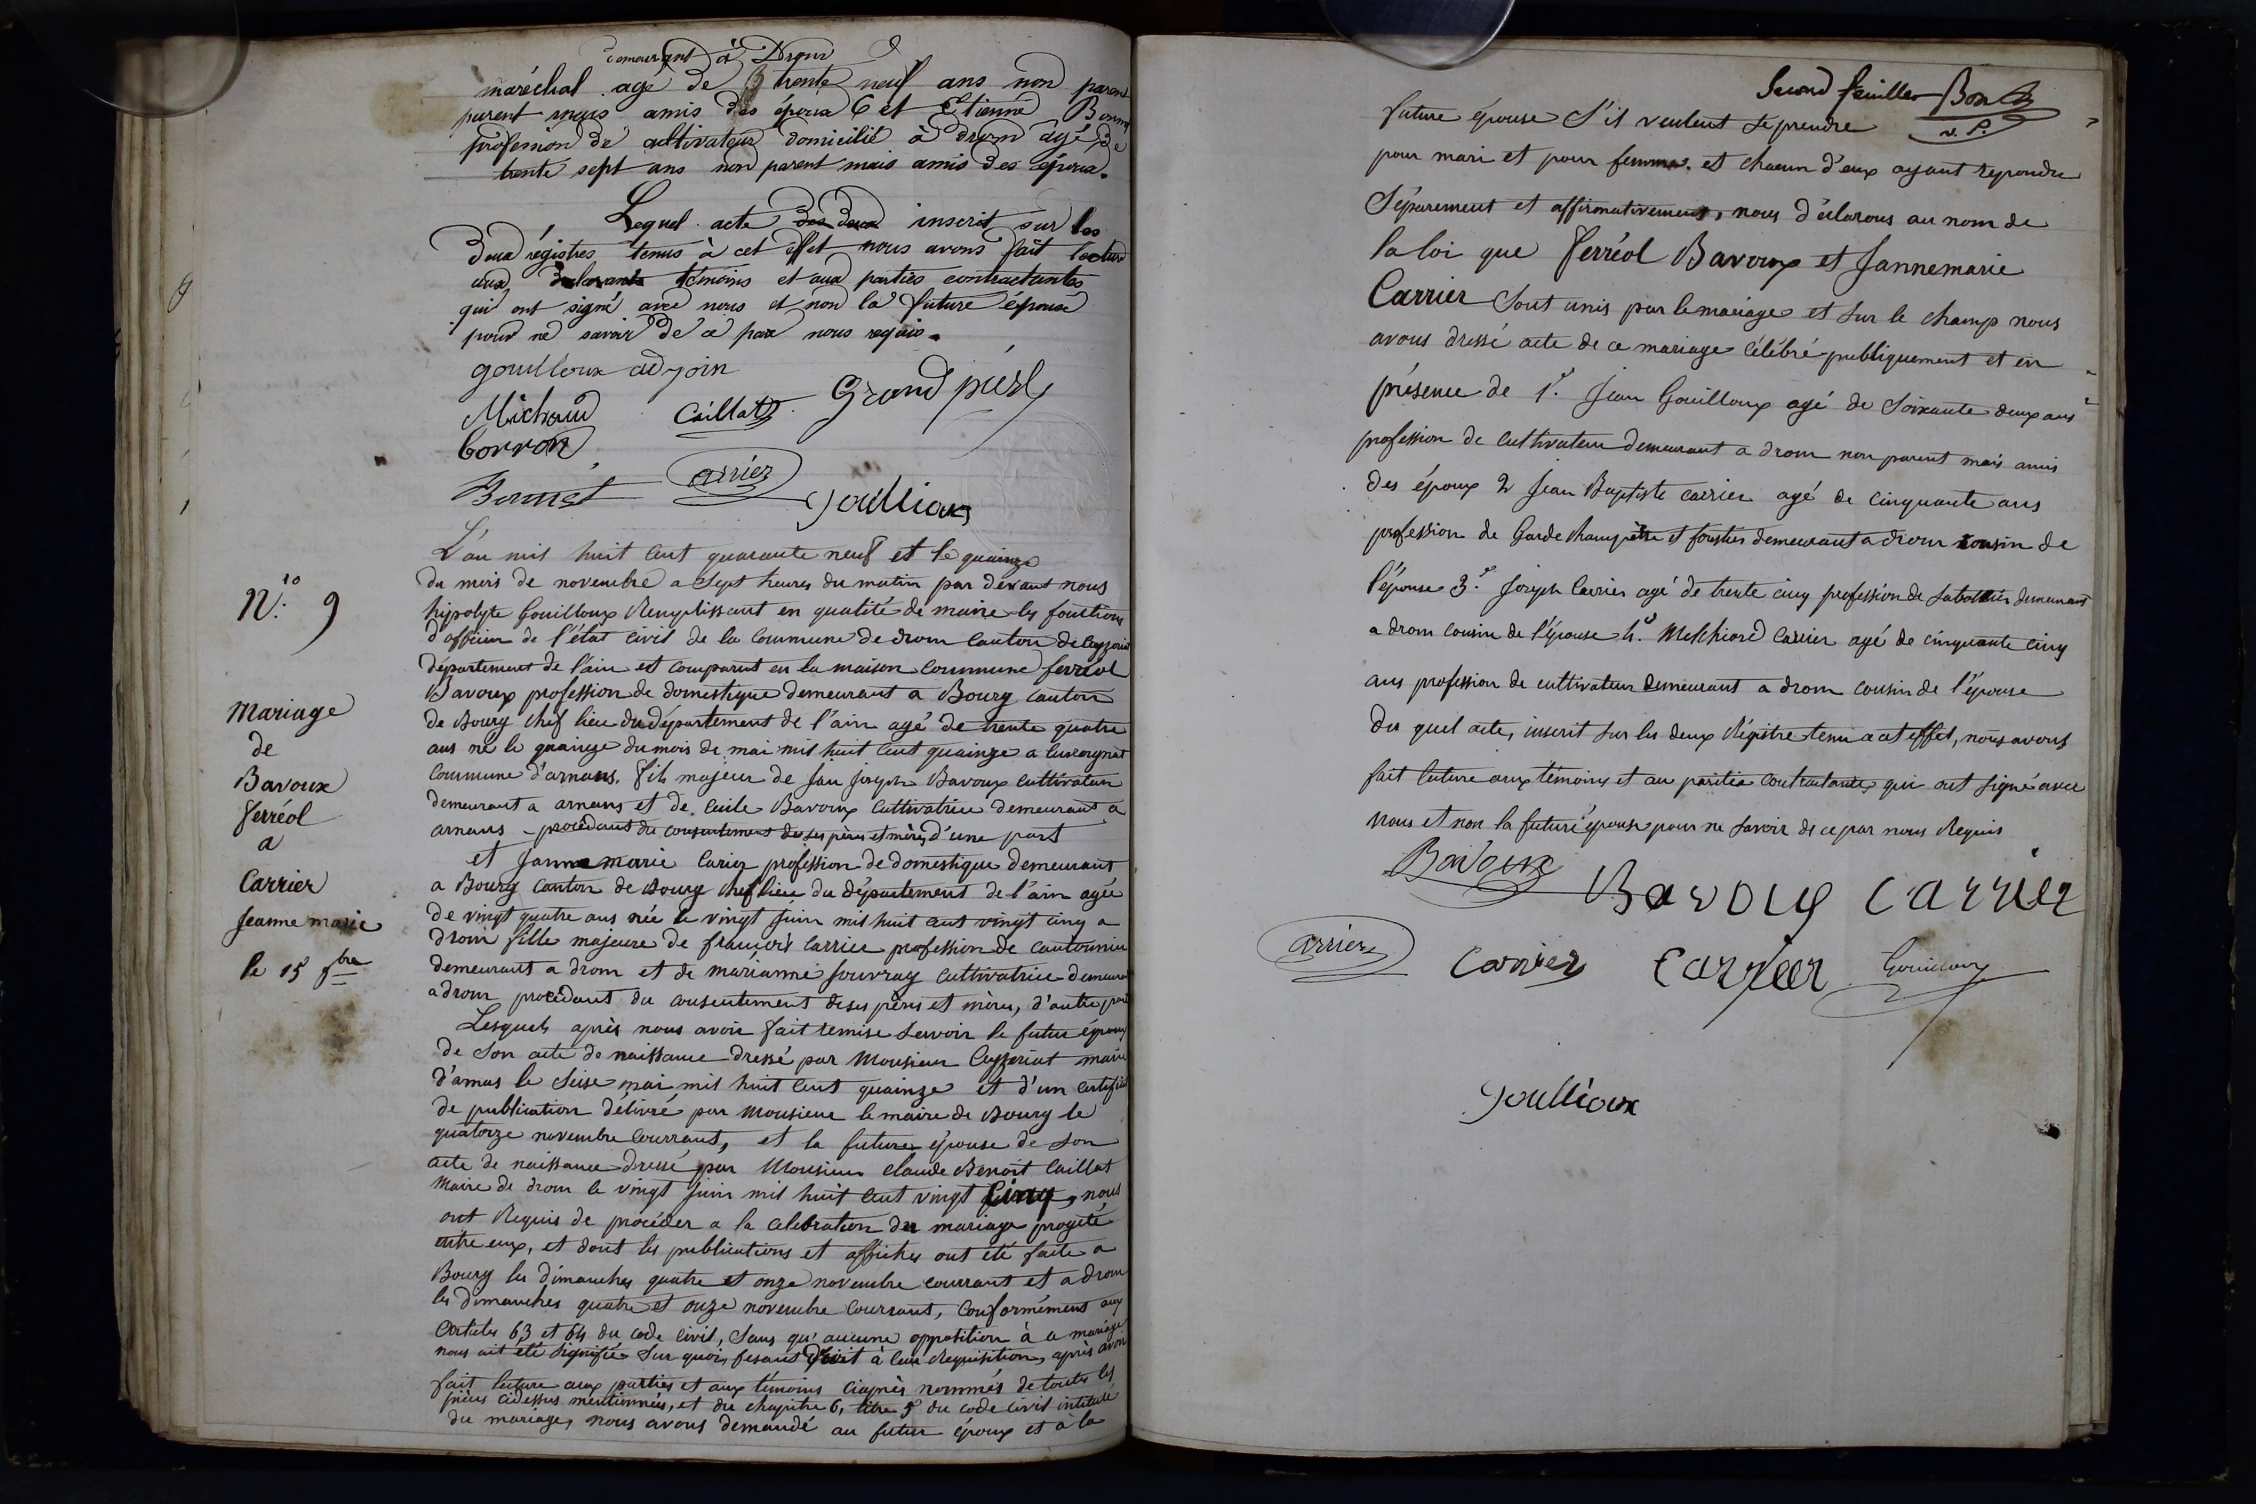 demeurant à Drom
maréchal agé de trente neuf ans non parent
parent mais amis des époux 6 et Etienne Bonnet
profession de cultivateur domicilié à drom agé de
trente sept ans non parent mais amis des époux.
Lequel acte des deux inscrit sur les
deux régistres tenus à cet effet nous avons fait lecture
aux déclarants témoins et aux parties contractantes
qui ont signé avec nous et non la future épouse
pour ne savoir de ce par nous requis.
gouilloux adjoin
Michaud Caillat Grand pierre
Corron
Bonnet Carrier
goullioux
L'an mil huit cent quarante neuf et le quainze
du mois de novembre a sept heures du matin par devant nous
hippolyte Gouilloux Remplissant en qualité de maire les fonctions
d'officier de l'état civil de la Commune de drom Canton de Ceyzeriat
département de l'ain est comparut en la maison commune ferréol
Bavoux profession de domestique demeurant a Bourg canton
de Bourg chef lieu du département de l'ain agé de trente quatre
ans né le quainze du mois de mai mil huit cent quainze a
Commune d'arnans, fils majeur de Jan Joseph Bavoux cultivateur
demeurant a arnans et de Cécile Bavoux Cultivatrice demeurant a
arnans procédant du consentement des ses pères et mères, d'une part
et Janne marie Carier profession de domestique demeurant
a Bourg canton de Bourg chef lieu du département de l'ain agée
de vingt quatre ans née le vingt juin mil huit cent vingt cinq a
drom fille majeure de françois Carrier profession de cantonnier
demeurant a drom et de marianne Jouvray cultivatrice demeurant
a drom procédant du consentement de ses pères et mères, d'autre part
Lesquels après nous avoir fait remise savoir le futur époux
de son acte de naissance dressé par Monsieur Ceyzeriat maire
d'arnas le seise mai mil huit cent quainze et d'un certificat
de publication délivré par Monsieur le maire de Bourg le
quatorze novembre courrant, et la future épouse de son
acte de naissance dressé par Monsieur Claude Benoit Caillat
Maire de drom le vingt juin mil huit cent vingt Cinq, nous
ont Requis de procéder a la célébration du mariage projeté
entre eux, et dont les publications et affiches ont été faite a
Bourg les dimanches quatre et onze novembre courrant et a drom
les dimanches quatre et onze novembre courrant, Conformément aux
articles 63 et 64 du code civil, sans qu'aucune opposition à ce mariage
nous ait été signifiée sur quoi, fesant droit à leur Requisition, après avoir
fait lecture aux parties et aux témoins ciaprès nommés de toutes les
pièces cidessus mentionnées, et du chapitre 6, titre 5 du code civil intitulé
du mariage, nous avons demandé au futur époux et à la
N.º 9
10
Mariage
de
Bavoux
ferréol
a
Carrier
Jeanne marie
le 15 9bre
Second feuillet Bon
v. P.
future épouse s'il veulent se prendre
pour mari et pour femme. et chacun d'eux ayant repondu
Séparement et affirmativement, nous déclarons au nom de
la loi que Ferréol Bavoux et Jannemarie
Carrier sont unis par le mariage et sur le champ nous
avons dressé acte de ce mariage célébré publiquement et en
présence de 1.º Jean Gouilloux agé de soixante deux ans
profession de cultivateur demeurant a drom non parent mais amis
des époux 2 Jean Baptiste Carrier agé de cinquante ans
profession de Garde champètre et forestier demeurant a drom cousin de
l'épouse 3.º Joseph Carrier agé de trente cinq profession de sabotier demeurant
a drom cousin de l'épouse 4.º Melchiord Carrier agé de cinquante cinq
ans profession de cultivateur demeurant a drom cousin de l'épouse
du quel acte, inscrit sur les deux Régistre tenu a cet effet, nous avons
fait lecture aux témoins et au partie contractantes qui ont signé avec
nous et non la future épouse pour ne savoir de ce par nous Requis
Bavoux
Bavoux Carrier
Carrier Carrier Carrier Gouilloux
goullioux